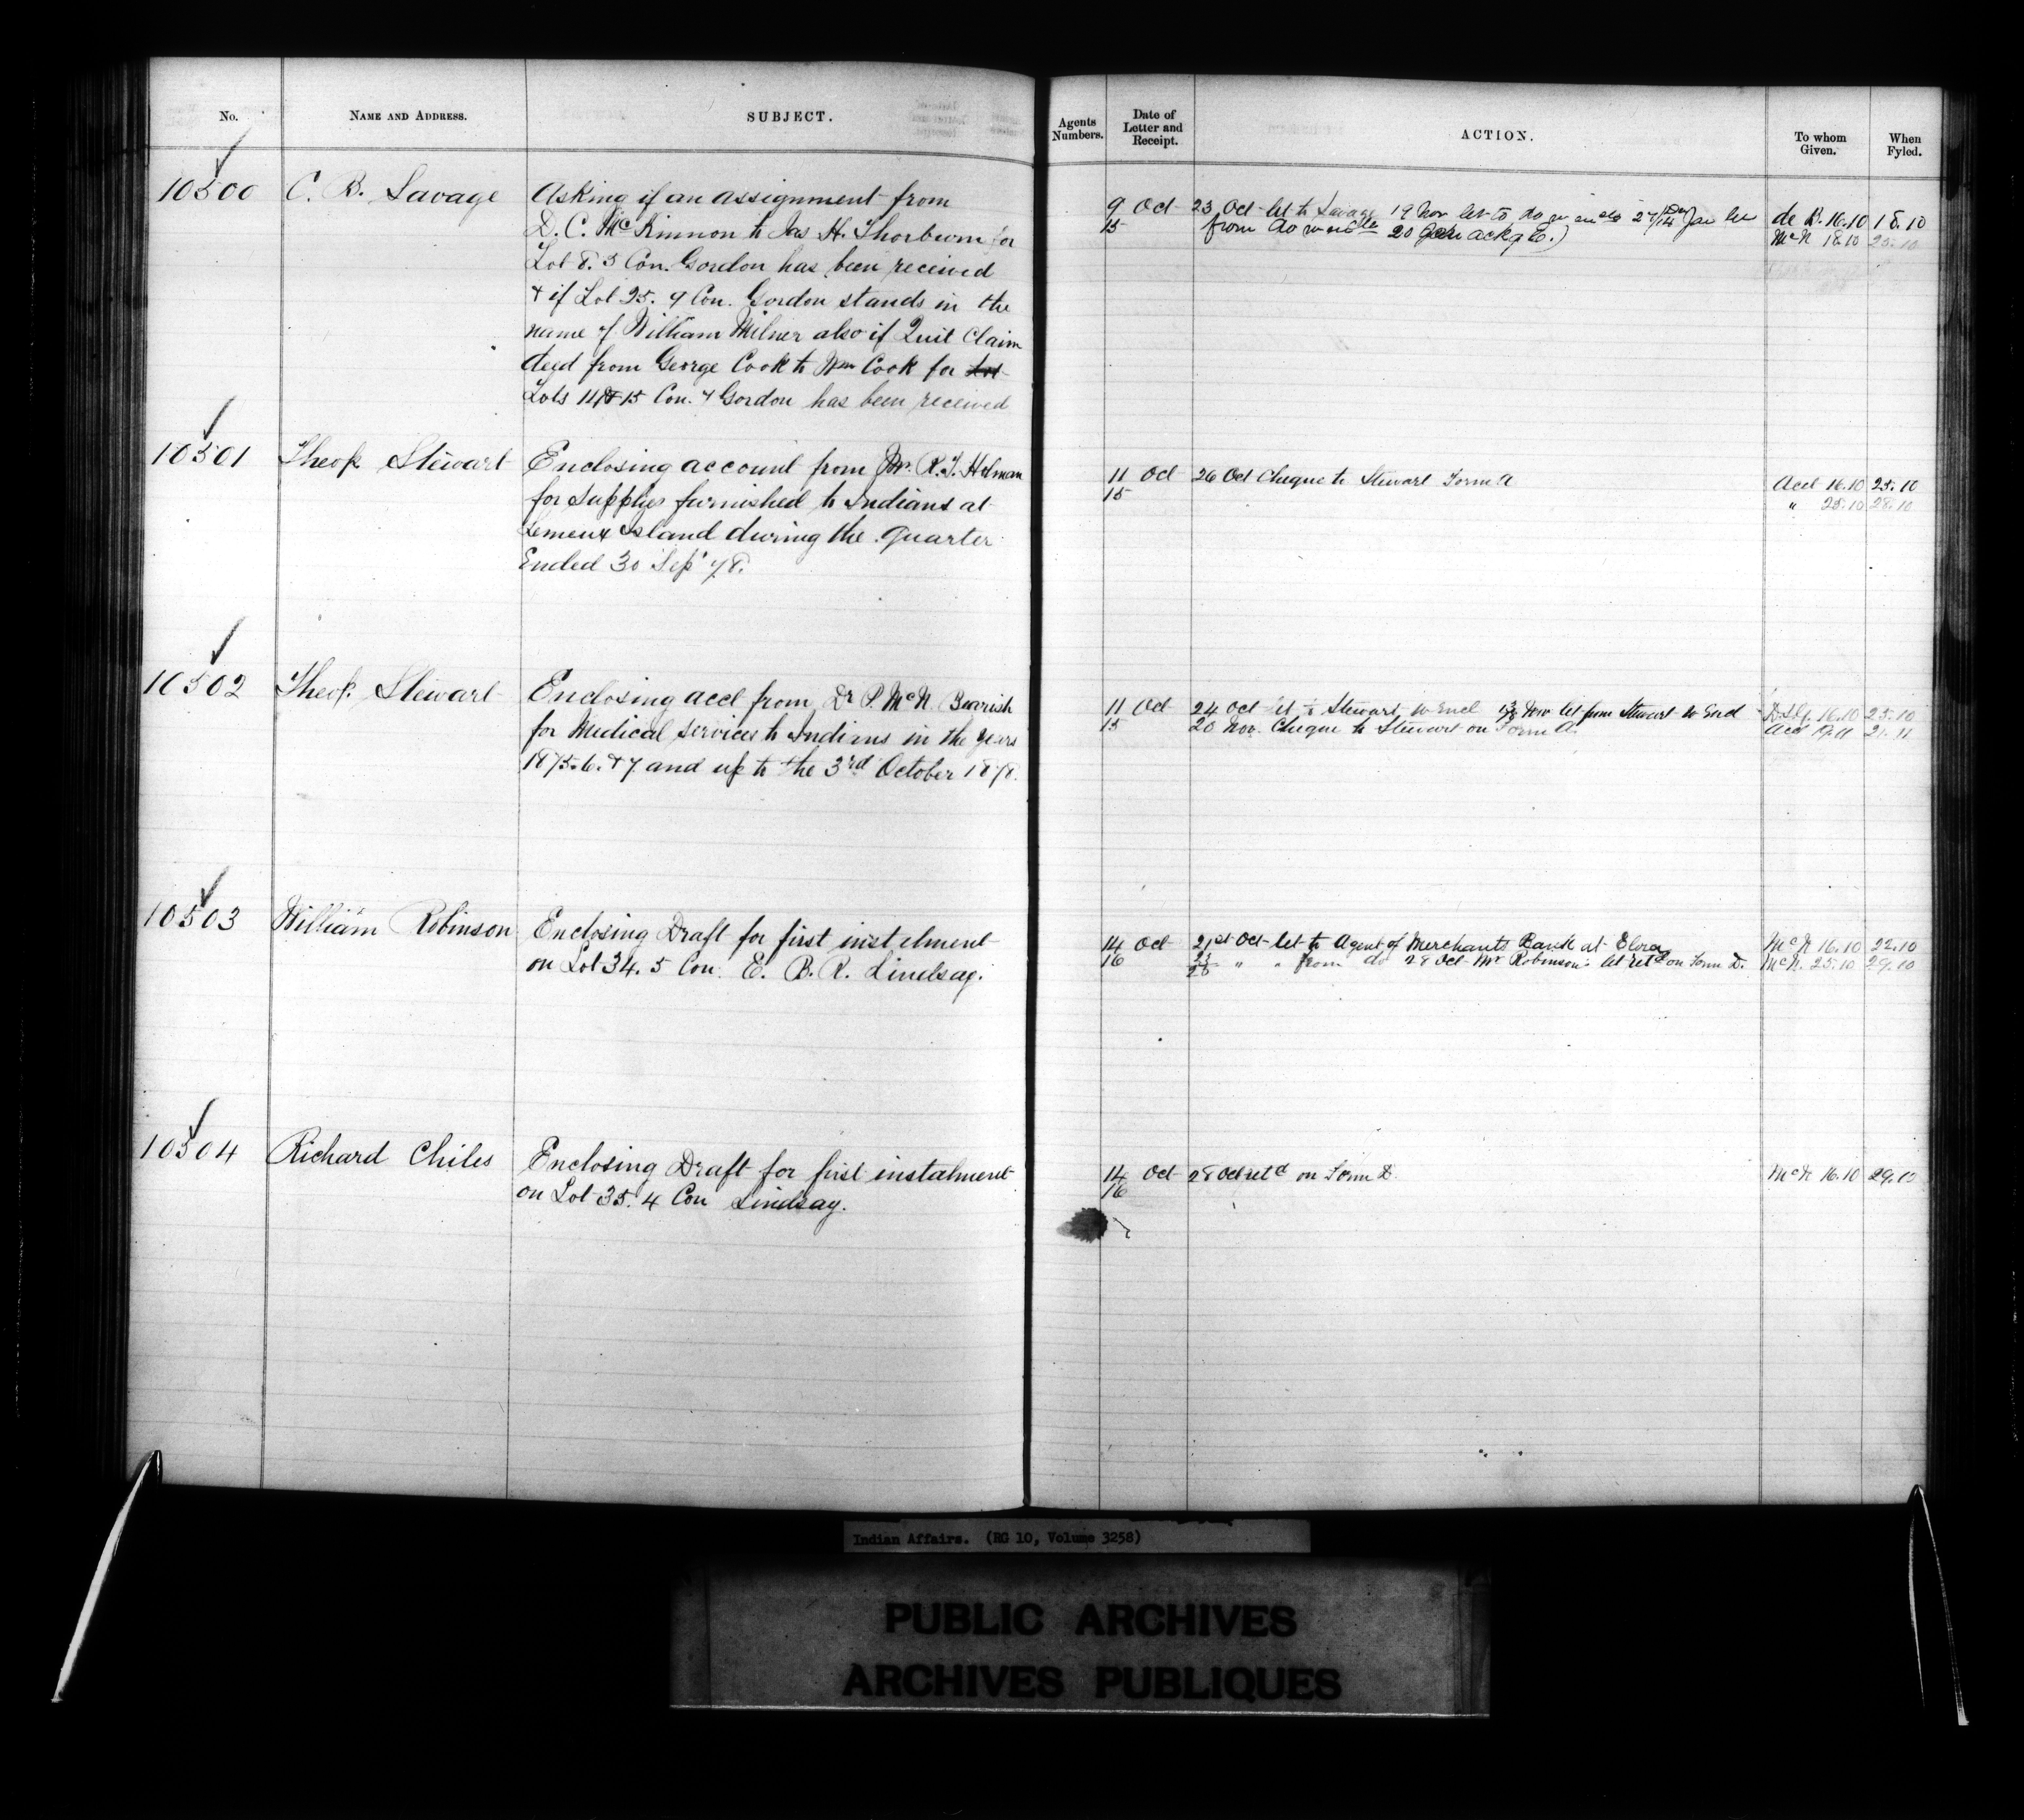 No.
NAME AND ADDRESS.
SUBJECT.
Agents Numbers.
Date of Letter and Receipt.
ACTION.
To whom Given.
When Fyled.
10500
C. B. Savage
Asking if an assignment from
D. C. McKinnon to Jas H. Thorburn for
Lot 8. 3 Con. Gordon has been received
& if Lot 25. 9 Con. Gordon stands in the
name of William Milner also if Quit Claim
deed from George Cook to Wm Cook for Lot
Lots 14 & 15 Con. 4 Gordon has been received
9 Oct
15
23 Oct let to Savage 19 Nov let to do Jan let
from do 20
de B. 16.10 18.10
McN 18.10 25.10
10501
Theop Stewart
Enclosing account from Mr. R. T. Holman
for supplies furnished to Indians at
Lemeux Island during the quarter
Ended 30 Sep' 78.
11 Oct
15
26 Oct Cheque to Stewart Form A
Acct 16.10 25.10
" 25.10 28.10
10502
Theop. Stewart
Enclosing acct from Dr P. McN.
for Medical services to Indians in the years
1875.6.&7 and up to the 3rd October 1878.
11 Oct
15
24 Oct let to Stewart w Encl Nov let from Stewart w Encl
20 Nov. Cheque to Stewart on Form A.
16.10 25.10
Acct 21.11
10503
William Robinson
Enclosing Draft for first instelment
on Lot 34. 5 Con. E. B. R. Lindsay.
14 Oct
16
21st Oct let to Agent of Merchants Bank at Elora
23/28 " " from do 28 Oct Mr Robinson's let retd on Form D.
McN 16.10 22.10
McN. 25.10 29.10
10504
Richard Chiles
Enclosing Draft for first instalment
on Lot 35. 4 Con Lindsay.
14 Oct
16
28 Oct retd on Form D.
McN 16.10 29.10
Indian Affairs. (RG 10, Volume 3258)
PUBLIC ARCHIVES
ARCHIVES PUBLIQUES